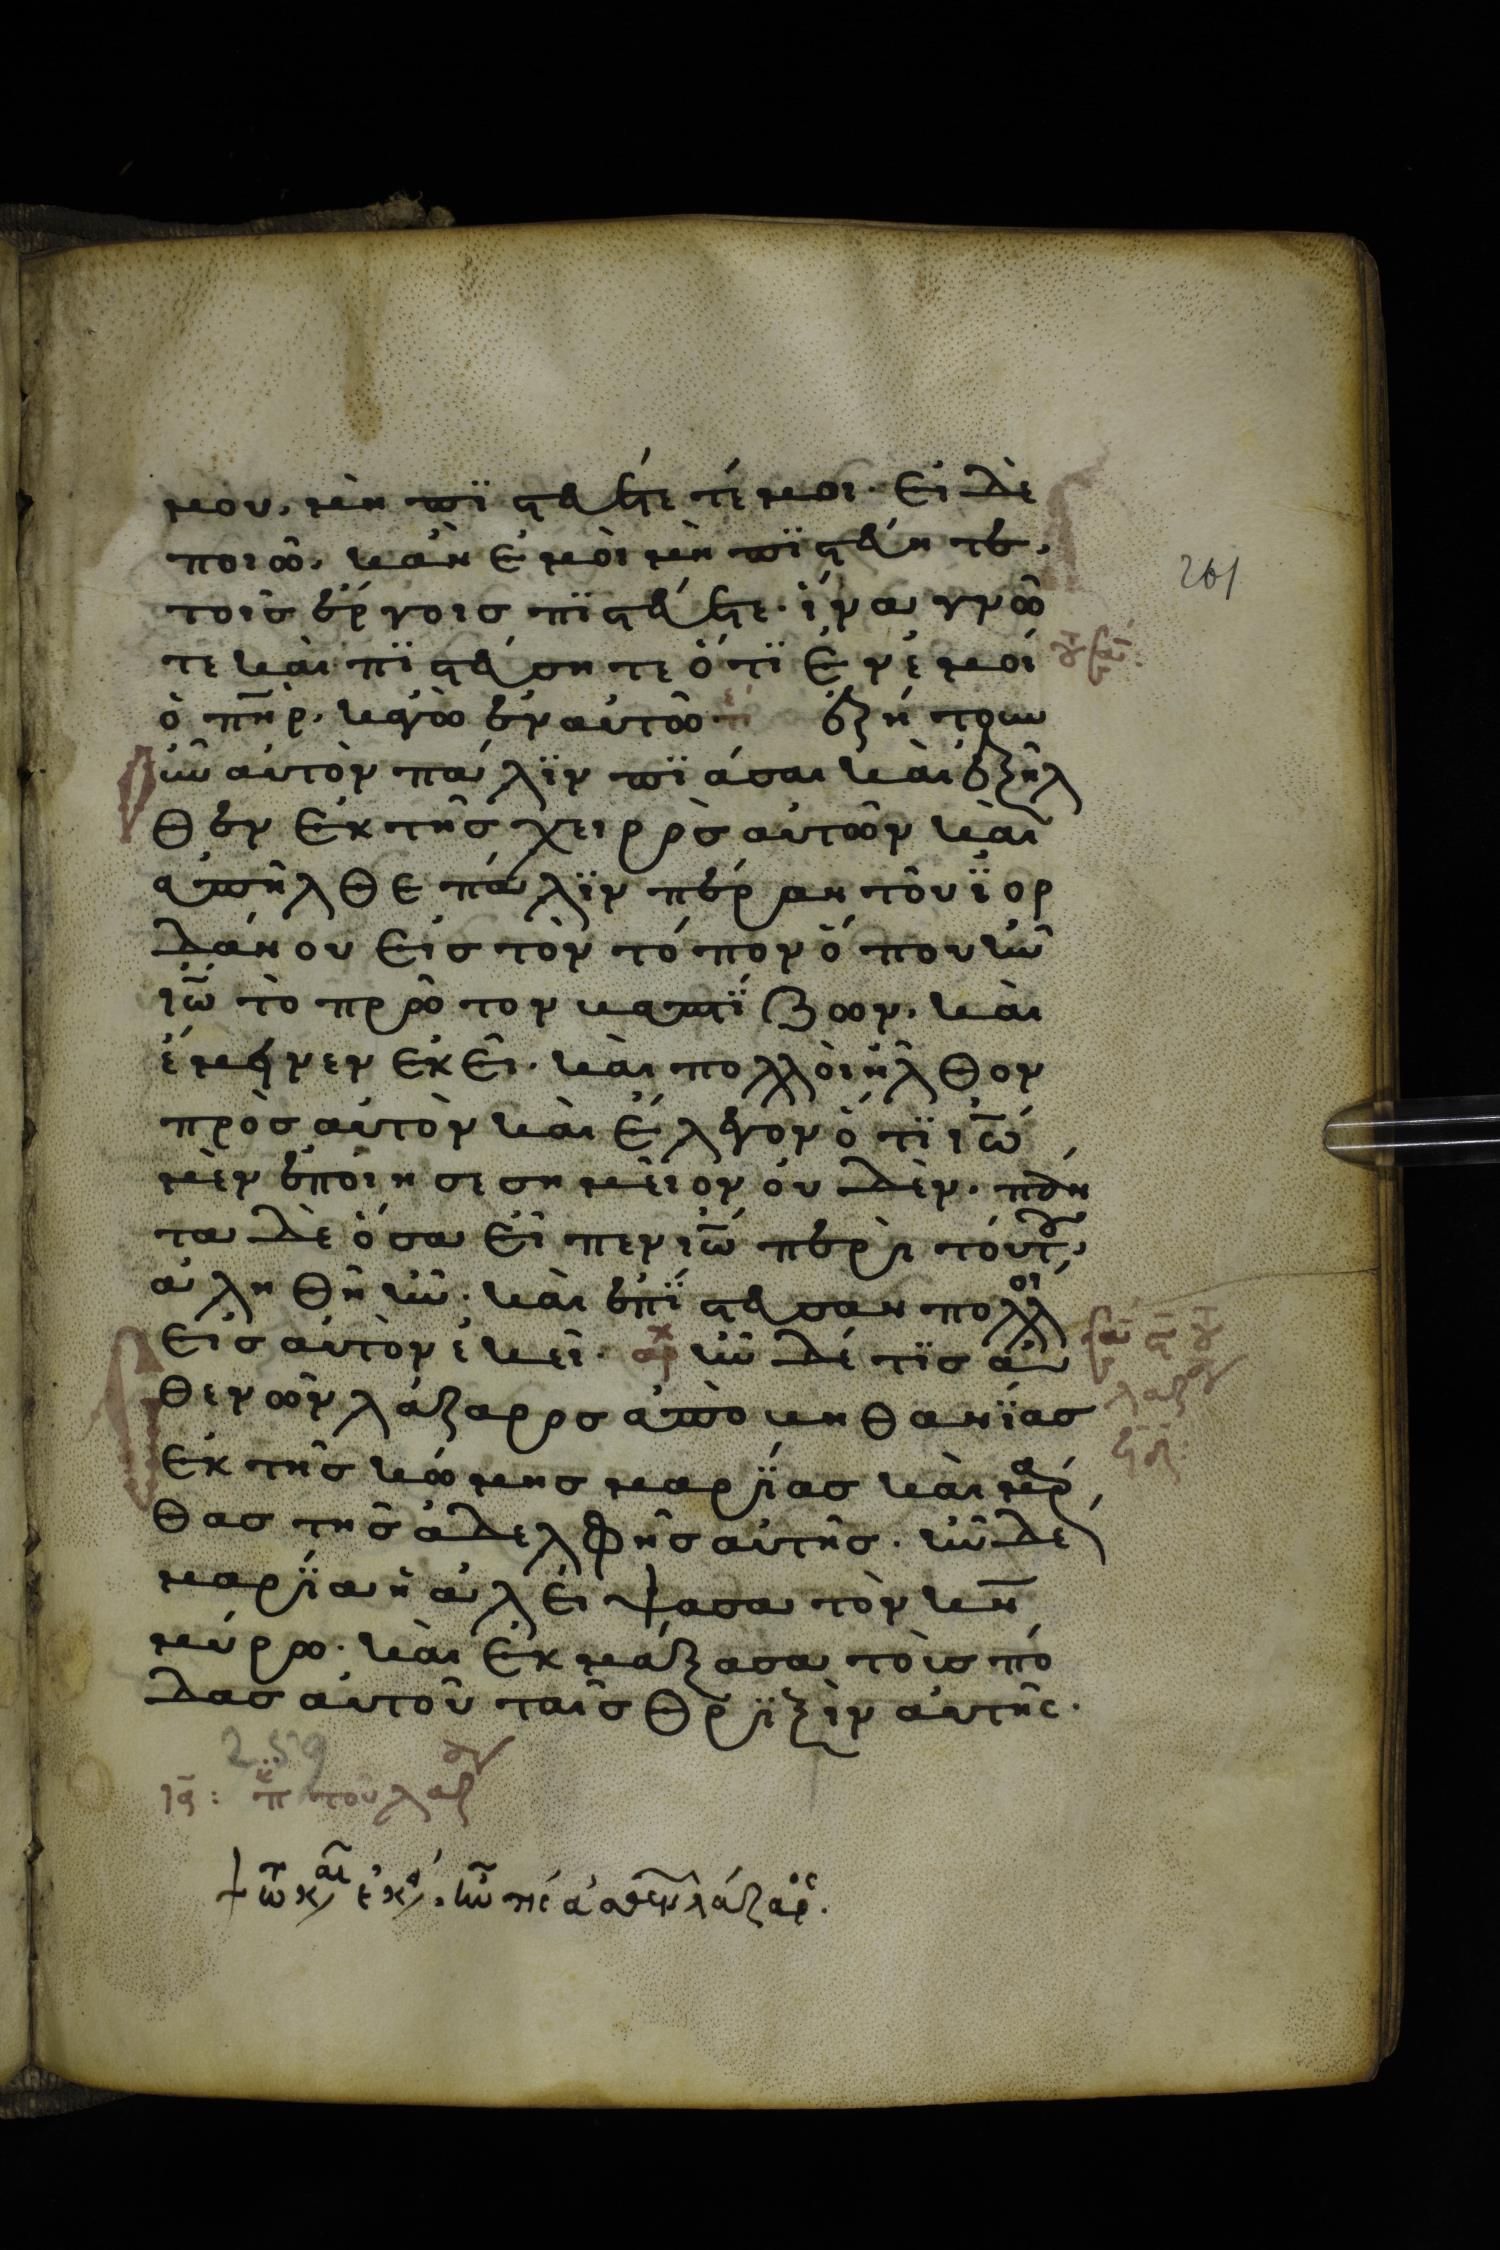 μου, μὴ πϊστεύετέ μοι· εἰ δὲ
ποιῶ, κἀν ἐμοὶ μὴ πϊστεύητε,
τοῖς ἔργοις πϊστεύετε· ἵνα γνῶ
τε καὶ πϊστεύσητε ὅτϊ ἐν ἐμοί
ὁ πη̄ρ, κἀγὼ ἐν αὐτῶ· ἐζήτουν
οὖν αὐτὸν πάλϊν πϊάσαι καὶ ἐξῆλ
θεν ἐκ τῆς χειρὸς αὐτῶν καὶ
ἀπῆλθε πάλϊν πέραν τοῦ ϊορ
δάνου εἰς τὸν τόπον ὅπου ἦν
ιω̄ τὸ πρῶτον βαπτΐζων, καὶ
ἔμεινεν ἐκεῖ· καὶ πολλοὶ ἦλθον
πρὸς αὐτὸν καὶ ἔλεγον ὅτϊ ιω̄
μὲν ἐποίησε σημεῖον οὐδὲν, πάν
τα δὲ ὅσα εἶπεν ιω̄ περὶ τούτου,
ἀληθῆ ἦν· καὶ ἐπΐστευσαν πολλοὶ
εἰς αὐτὸν ἐκεῖ· αρχ ἦν δέ τϊς ἀσ
θενῶν λάζαρος ἀπὸ βηθανΐας
ἐκ τῆς κώμης μαρΐας καὶ μάρ
θας τῆς ἀδελφῆς αὐτῆς· ἦν δὲ
μαρΐα ἡ ἀλείψασα τὸν κν̄
μύρω· καὶ ἐκμάξασα τοὺς πό
δας αὐτοῦ ταῖς θριξὶν αὐτῆς·
261
259
τοῦ λαζ